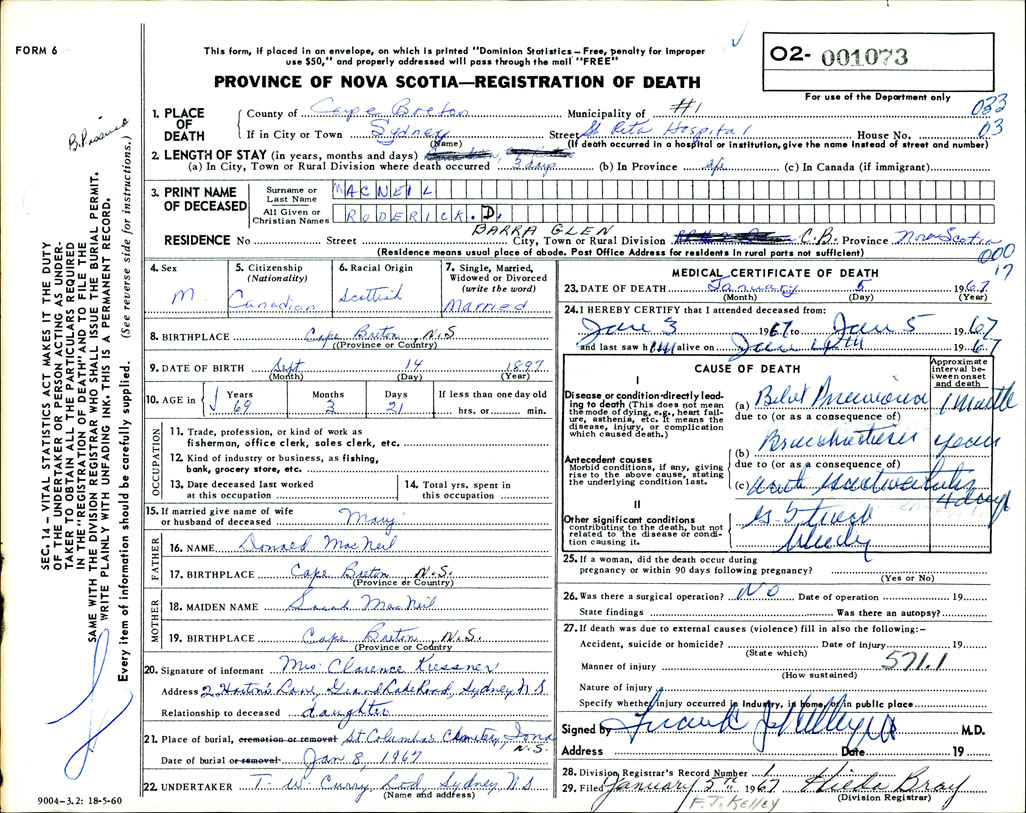 FORM 6
This form, if placed in an envelope, on which is printed "Dominion Statistics – Free, penalty for improper
use $50," and properly addressed will pass through the mail "FREE"
PROVINCE OF NOVA SCOTIA—REGISTRATION OF DEATH
O2- 001073
For use of the Department only
033
03
1. PLACE OF DEATH
County of Cape Breton Municipality of #1
If in City or Town Sydney Street St Rita Hospital House No.
(Name) (If death occurred in a hospital or institution, give the name instead of street and number)
2. LENGTH OF STAY (in years, months and days)
(a) In City, Town or Rural Division where death occurred 3 days (b) In Province life (c) In Canada (if immigrant)
3. PRINT NAME OF DECEASED
Surname or Last Name MACNEIL
All Given or Christian Names RODERICK. D.
BARRA GLEN
RESIDENCE No Street City, Town or Rural Division C.B. Province Nova Scotia
(Residence means usual place of abode. Post Office Address for residents in rural parts not sufficient)
000
17
4. Sex
M.
5. Citizenship
(Nationality)
Canadian
6. Racial Origin
Scottish
7. Single, Married,
Widowed or Divorced
(write the word)
Married
8. BIRTHPLACE Cape Breton N.S
(Province or Country)
9. DATE OF BIRTH Sept 14 1897
(Month) (Day) (Year)
10. AGE in Years Months Days If less than one day old
69 3 21 hrs. or min.
OCCUPATION
11. Trade, profession, or kind of work as
fisherman, office clerk, sales clerk, etc.
12. Kind of industry or business, as fishing,
bank, grocery store, etc.
13. Date deceased last worked
at this occupation
14. Total yrs. spent in
this occupation
15. If married give name of wife
or husband of deceased Mary
FATHER
16. NAME Donald MacNeil
17. BIRTHPLACE Cape Breton N.S.
(Province or Country)
MOTHER
18. MAIDEN NAME Sarah MacNeil
19. BIRTHPLACE Cape Breton, N.S.
(Province or Country)
20. Signature of informant Mrs. Clarence Kressner
Address 2 Horton's Lane, Grand Lake Road, Sydney N S
Relationship to deceased daughter
21. Place of burial, cremation or removal St. Columba Cemetery, Iona
N.S.
Date of burial or removal Jan 8, 1967
22. UNDERTAKER T. W. Curry Ltd, Sydney N S
(Name and address)
9004–3.2: 18-5-60
MEDICAL CERTIFICATE OF DEATH
23. DATE OF DEATH January 5 1967
(Month) (Day) (Year)
24. I HEREBY CERTIFY that I attended deceased from:
Jan 3 1967 to Jan 5 1967
and last saw him alive on Jan 4th 1967
CAUSE OF DEATH
Approximate interval between onset and death
I
Disease or condition directly leading to death (This does not mean the mode of dying, e.g., heart failure, asthenia, etc. It means the disease, injury, or complication which caused death.)
(a) Bilat Pneumonia 1 Month
due to (or as a consequence of)
Antecedent causes
Morbid conditions, if any, giving rise to the above cause, stating the underlying condition last.
(b) Bronchiectasis years
due to (or as a consequence of)
(c) Acute Gastroenteritis 4 days
II
Other significant conditions contributing to the death, but not related to the disease or condition causing it.
25. If a woman, did the death occur during
pregnancy or within 90 days following pregnancy?
(Yes or No)
26. Was there a surgical operation? No Date of operation 19
State findings Was there an autopsy?
27. If death was due to external causes (violence) fill in also the following:–
Accident, suicide or homicide? Date of injury 19
(State which)
571.1
Manner of injury
(How sustained)
Nature of injury
Specify whether injury occurred in industry, in home, or in public place
Signed by Frank J Kelly M.D.
Address Date 19
28. Division Registrar's Record Number 1
29. Filed January 5th 1967 Hilda Bray
(Division Registrar)
F. J. KELLEY
SEC. 14 – VITAL STATISTICS ACT MAKES IT THE DUTY
OF THE UNDERTAKER OR PERSON ACTING AS UNDER-
TAKER TO OBTAIN ALL THE PARTICULARS REQUIRED
IN THE "REGISTRATION OF DEATH" AND TO FILE THE
SAME WITH THE DIVISION REGISTRAR WHO SHALL ISSUE THE BURIAL PERMIT.
WRITE PLAINLY WITH UNFADING INK. THIS IS A PERMANENT RECORD.
Every item of information should be carefully supplied. (See reverse side for instructions.)